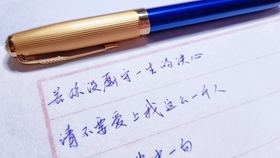 若你没厮守一生的决心
请不要爱上我这么一个人
一句